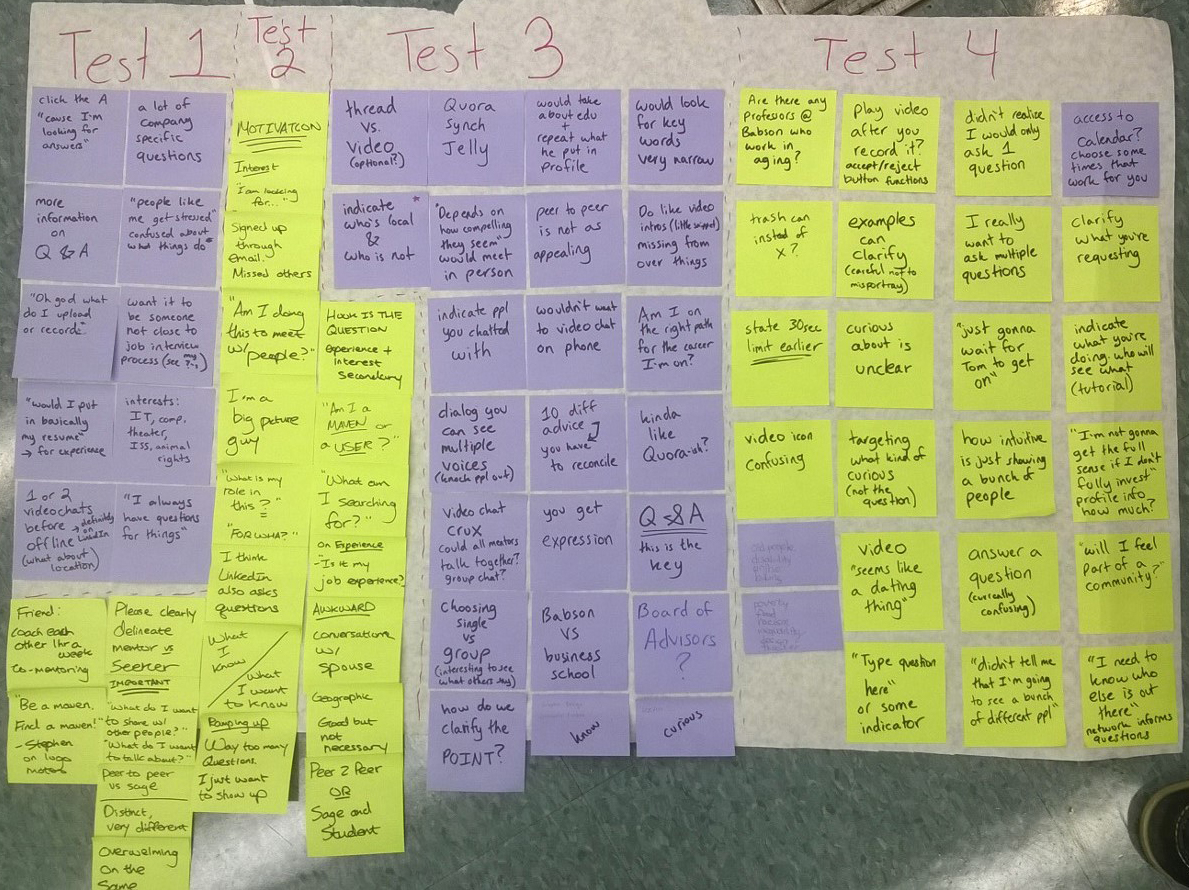 Test 1
click the A
"cause I'm
looking for
answers"
a lot of
company
specific
questions
more
information
on
Q & A
"people like
me get stressed"
confused about
what things do*
"Oh god what
do I upload
or record"
want it to
be someone
not close to
job interview
process (see my ?'s)
"would I put
in basically
my resume"
→ for experience
interests:
IT, comp.
theater,
ISS, animal
rights
1 or 2
videochats
before → definitely on LinkedIn
offline
(what about
location)
"I always
have questions
for things"
Friend:
coach each
other 1hr a
week
Co-mentoring
Please clearly
delineate
mentor vs
Seeker
IMPORTANT
"Be a maven.
Find a maven!"
- Stephen
on logo
"What do I want
to share w/
other people?"
"What do I want
to talk about?"
Peer to peer
vs sage
Distinct,
very different
Overwelming
on the
Same
Test
2
MOTIVATION
Interest
"I am looking
for..."
Signed up
through
email.
Missed others
"Am I doing
this to meet
w/people?"
I'm a
big picture
guy
"What is my
role in
this?"
=
"FOR WHA?"
I think
LinkedIn
also asks
questions
What
I
know
/
what
I want
to know
Ramping up
Way too many
Questions.
I just want
to show up
HOOK IS THE
QUESTION
experience +
Interest
Secondary
"Am I a
MAVEN or
a USER?"
"What am
I searching
for?"
on Experience
- "Is it my
job experience?
AWKWARD
conversations
w/
spouse
Geographic
Good but
not
necessary
Peer 2 Peer
OR
Sage and
Student
Test 3
thread
vs.
video
(optional?)
Quora
Synch
Jelly
would take
about edu
+
repeat what
he put in
profile
would look
for key
words
very narrow
indicate *
who's local
&
who is not
"Depends on
how compelling
they seem"
would meet
in person
peer to peer
is not as
appealing
Do like video
intros (little snippet)
missing from
over things
indicate ppl
you chatted
with
wouldn't want
to video chat
on phone
Am I on
the right path
for the career
I'm on?
dialog you
can see
multiple
voices
(knock ppl out)
10 diff
advice
you have
to reconcile
kinda
like
Quora-ish?
video chat
crux
could all mentors
talk together?
group chat?
you get
expression
Q & A
this is the
key
Choosing
single
vs
group
(interesting to see
what others say)
Babson
vs
business
school
Board of
Advisors
?
how do we
clarify the
POINT?
know
curious
Test 4
Are there any
Profesiors @
Babson who
work in
aging?
play video
after you
record it?
accept/reject
button functions
didn't realize
I would only
ask 1
question
access to
Calendar?
choose some
times that
work for you
trash can
instead of
x?
examples
can
clarify
(careful not to
misportray)
I really
want to
ask multiple
questions
clarify
what you're
requesting
state 30sec
limit earlier
curious
about is
unclear
"just gonna
wait for
Tom to get
on"
indicate
what you're
doing. who will
see what
(tutorial)
video icon
confusing
targeting
what kind of
curious
(not the
question)
how intuitive
is just showing
a bunch of
people
"I'm not gonna
get the full
sense if I don't
fully invest"
profile info
how much?
video
"seems like
a dating
thing"
answer a
question
(currently
confusing)
"will I feel
part of a
community?"
"Type question
here"
or some
indicator
"didn't tell me
that I'm going
to see a bunch
of different ppl"
"I need to
know who
else is out
there"
network informs
questions